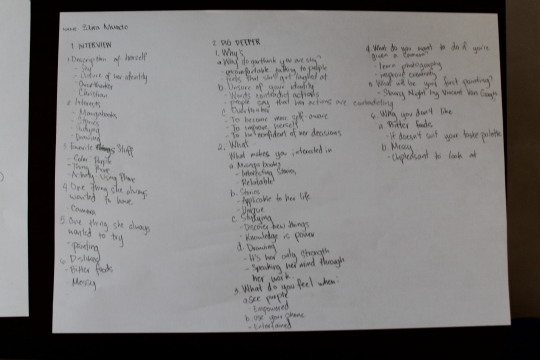 1. INTERVIEW
1. Description of herself
- Shy
- Unsure of her identity
- Overthinker
- Christian
2. Interests
- Manga books
- Stories
- Studying
- Drawing
3. Favorite Stuff
- Color Purple
- Thing Phone
- Activity Using Phone
4. One thing she always
wanted to have
- Camera
5. One thing she always
wanted to try
- painting
6. Dislikes
- Bitter foods
- Messy
2. DIG DEEPER
1. Why?
a. Why do you think you are shy?
- uncomfortable talking to people
- feels that she'll get laughed at
b. Unsure of your identity
- Wants contradict actions
- people say that her actions are contradicting
c. Overthinker
- To become more self aware
- To improve herself
- To be confident of her decisions
2. What
What makes you interested in
a. Manga books
- Interesting Stories
- Relatable
b. Stories
- Applicable to her life
- Unique
c. Studying
- Discover new things
- Knowledge is power
d. Drawing
- It's her only strength
- Speaking her mind through
her work
3. What do you feel when:
a. see purple
- Empowered
b. use your phone
- Entertained
4. What do you want to do if you're
given a camera?
- learn photography
5. What will be your first painting?
- Starry Night by Vincent Van Gogh
6. Why you don't like
a. Bitter foods
- it doesn't suit your taste palette
b. Messy
- Unpleasant to look at